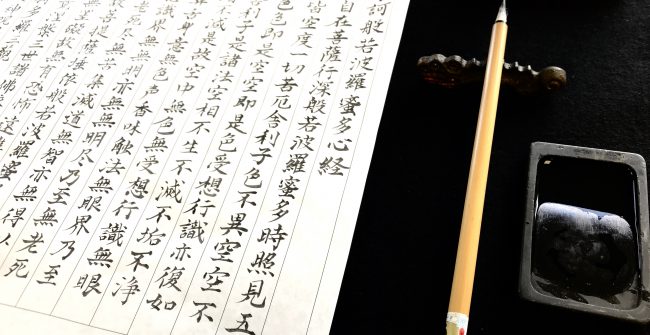 訶般若波羅蜜多心経
自在菩薩行深般若波羅蜜多時照見五
皆空度一切苦厄舎利子色不異空空不
色色即是空空即是色受想行識亦復如
利子是諸法空相不生不滅不垢不浄
減是故空中無色無受想行識無眼
身意無色声香味触法無眼界乃至
識界無無明亦無無明尽乃至無老死
尽無苦集滅道無智亦無得以
菩提薩埵依般若波羅蜜
罣礙故無有恐怖遠
三世諸佛